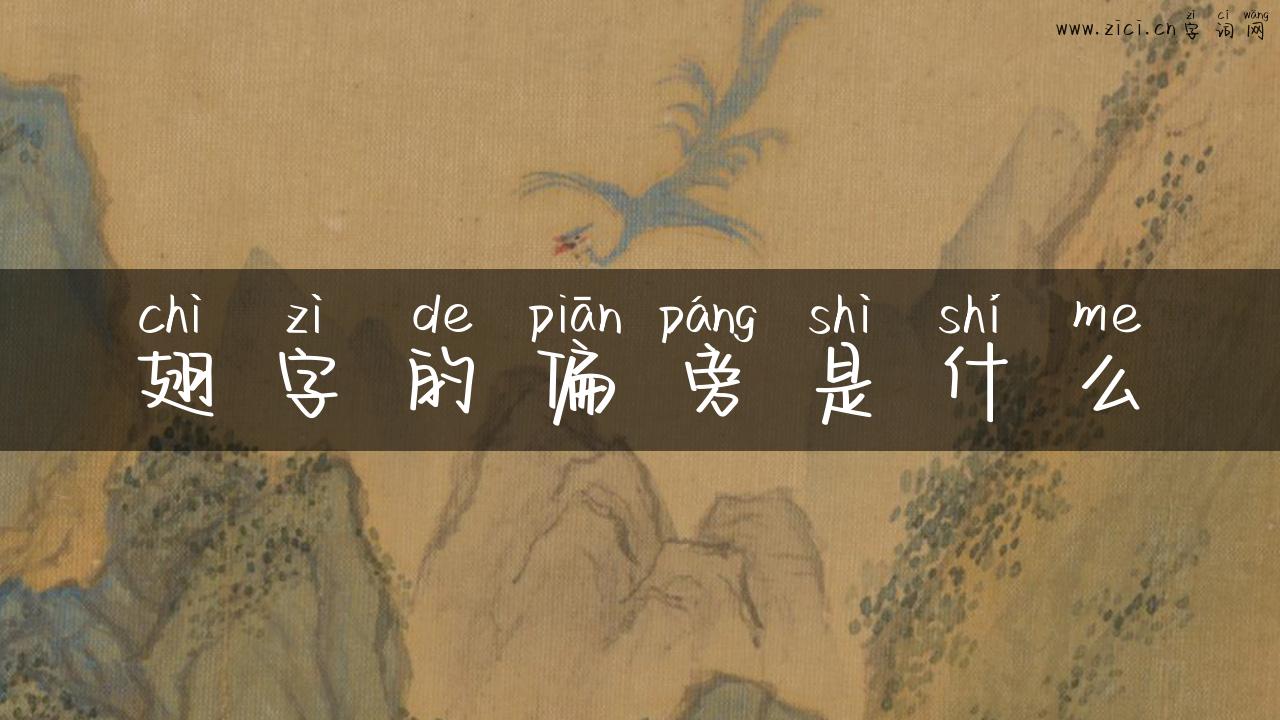 zì cí wǎng
www.zici.cn字词网
chì zì de piān páng shì shí me
翅字的偏旁是什么